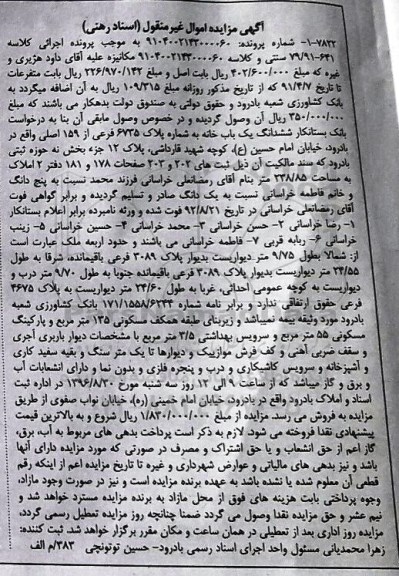 آگهی مزایده اموال غیرمنقول (اسناد رهنی)
۱-۷۸۲۲- شماره پرونده: ۹۱۰۴۰۰۲۱۴۳۰۰۰۰۶۰ به موجب پرونده اجرائی کلاسه
۷۹/۹۱-۶۴۱ سنتی و کلاسه ۹۱۰۴۰۰۲۱۴۳۰۰۰۰۶۰ مکانیزه علیه آقای داود هژیری و
غیره که مبلغ ۴۰۲/۶۰۰/۰۰۰ ریال بابت اصل و مبلغ ۲۲۶/۹۷۰/۱۴۲ ریال بابت متفرعات
تا تاریخ ۹۱/۴/۷ که از تاریخ مذکور روزانه مبلغ ۱۰۹/۳۱۵ ریال به آن اضافه میگردد به
بانک کشاورزی شعبه بادرود و حقوق دولتی به صندوق دولت بدهکار می باشند که مبلغ
۳۵۰/۰۰۰/۰۰۰ ریال آن وصول گردیده و در خصوص وصول مابقی آن بنا به درخواست
بانک بستانکار ششدانگ یک باب خانه به شماره پلاک ۶۷۳۵ فرعی از ۱۵۹ اصلی واقع در
بادرود، خیابان امام حسین (ع)، کوچه شهید قارداشی، پلاک ۱۲ جزء بخش نه حوزه ثبتی
بادرود که سند مالکیت آن ذیل ثبت های ۲۰۲ و ۲۰۳ صفحات ۱۷۸ و ۱۸۱ دفتر ۲ املاک
به مساحت ۲۳۸/۸۵ متر بنام آقای رمضانعلی خراسانی فرزند محمد نسبت به پنج دانگ
و خانم فاطمه خراسانی نسبت به یک دانگ صادر و تسلیم گردیده و برابر گواهی فوت
آقای رمضانعلی خراسانی در تاریخ ۹۲/۸/۲۱ فوت شده و ورثه نامبرده برابر اعلام بستانکار
۱- رضا خراسانی ۲- حسن خراسانی ۳- محمد خراسانی ۴- حسین خراسانی ۵- زینب
خراسانی ۶- ربابه قربی ۷- فاطمه خراسانی می باشند و حدود اربعه ملک عبارت است
از: شمالا بطول ۹/۷۵ متر دیواریست بدیوار پلاک ۳۰۸۹ فرعی باقیمانده، شرقا به طول
۲۴/۵۵ متر دیواریست بدیوار پلاک ۳۰۸۹ فرعی باقیمانده جنوبا به طول ۹/۷۰ متر درب و
دیواریست به کوچه عمومی احداثی، غربا به طول ۲۴/۶۰ متر دیواریست به پلاک ۴۶۷۵
فرعی حقوق ارتفاقی ندارد و برابر نامه شماره ۱۷۱/۱۵۵۸/۶۲۴۴ بانک کشاورزی شعبه
بادرود مورد وثیقه بیمه نمیباشد و زیربنای طبقه همکف مسکونی ۱۳۵ متر مربع و پارکینگ
مسکونی ۵۵ متر مربع و سرویس بهداشتی ۳/۵ متر مربع با مشخصات دیوار باربری آجری
و سقف ضربی آهنی و کف فرش موزاییک و دیوارها تا یک متر سنگ و بقیه سفید کاری
و آشپزخانه و سرویس کاشیکاری و درب و پنجره فلزی و بدون نما و دارای انشعابات آب
و برق و گاز میباشد که از ساعت ۹ الی ۱۲ روز سه شنبه مورخ ۱۳۹۶/۸/۳۰ در اداره ثبت
اسناد و املاک بادرود واقع در بادرود، خیابان امام خمینی (ره)، خیابان نواب صفوی از طریق
مزایده به فروش می رسد. مزایده از مبلغ ۱/۸۳۰/۰۰۰/۰۰۰ ریال شروع و به بالاترین قیمت
پیشنهادی نقدا فروخته می شود. لازم به ذکر است پرداخت بدهی های مربوط به آب، برق،
گاز اعم از حق انشعاب و یا حق اشتراک و مصرف در صورتی که مورد مزایده دارای آنها
باشد و نیز بدهی های مالیاتی و عوارض شهرداری و غیره تا تاریخ مزایده اعم از اینکه رقم
قطعی آن معلوم شده یا نشده باشد به عهده برنده مزایده است و نیز در صورت وجود مازاد،
وجوه پرداختی بابت هزینه های فوق از محل مازاد به برنده مزایده مسترد خواهد شد و
نیم عشر و حق مزایده نقدا وصول می گردد ضمنا چنانچه روز مزایده تعطیل رسمی گردد،
مزایده روز اداری بعد از تعطیلی در همان ساعت و مکان مقرر برگزار خواهد شد. ثبت کننده:
زهرا محمدیانی مسئول واحد اجرای اسناد رسمی بادرود- حسین توتونچی ۳۸۳/م الف